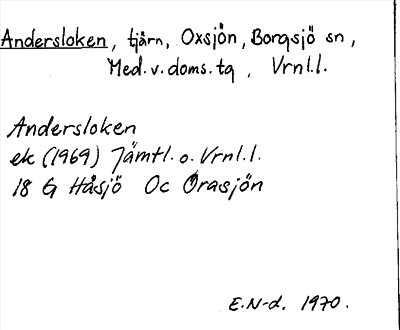 Andersloken, tjärn, Oxsjön, Borgsjö sn,
Med.v.doms.tg, Vrnl.l.
Andersloken
ek (1969) Jämtl. o. Vrnl.l.
18 G Håsjö Oc Orasjön
E.N-d. 1970.